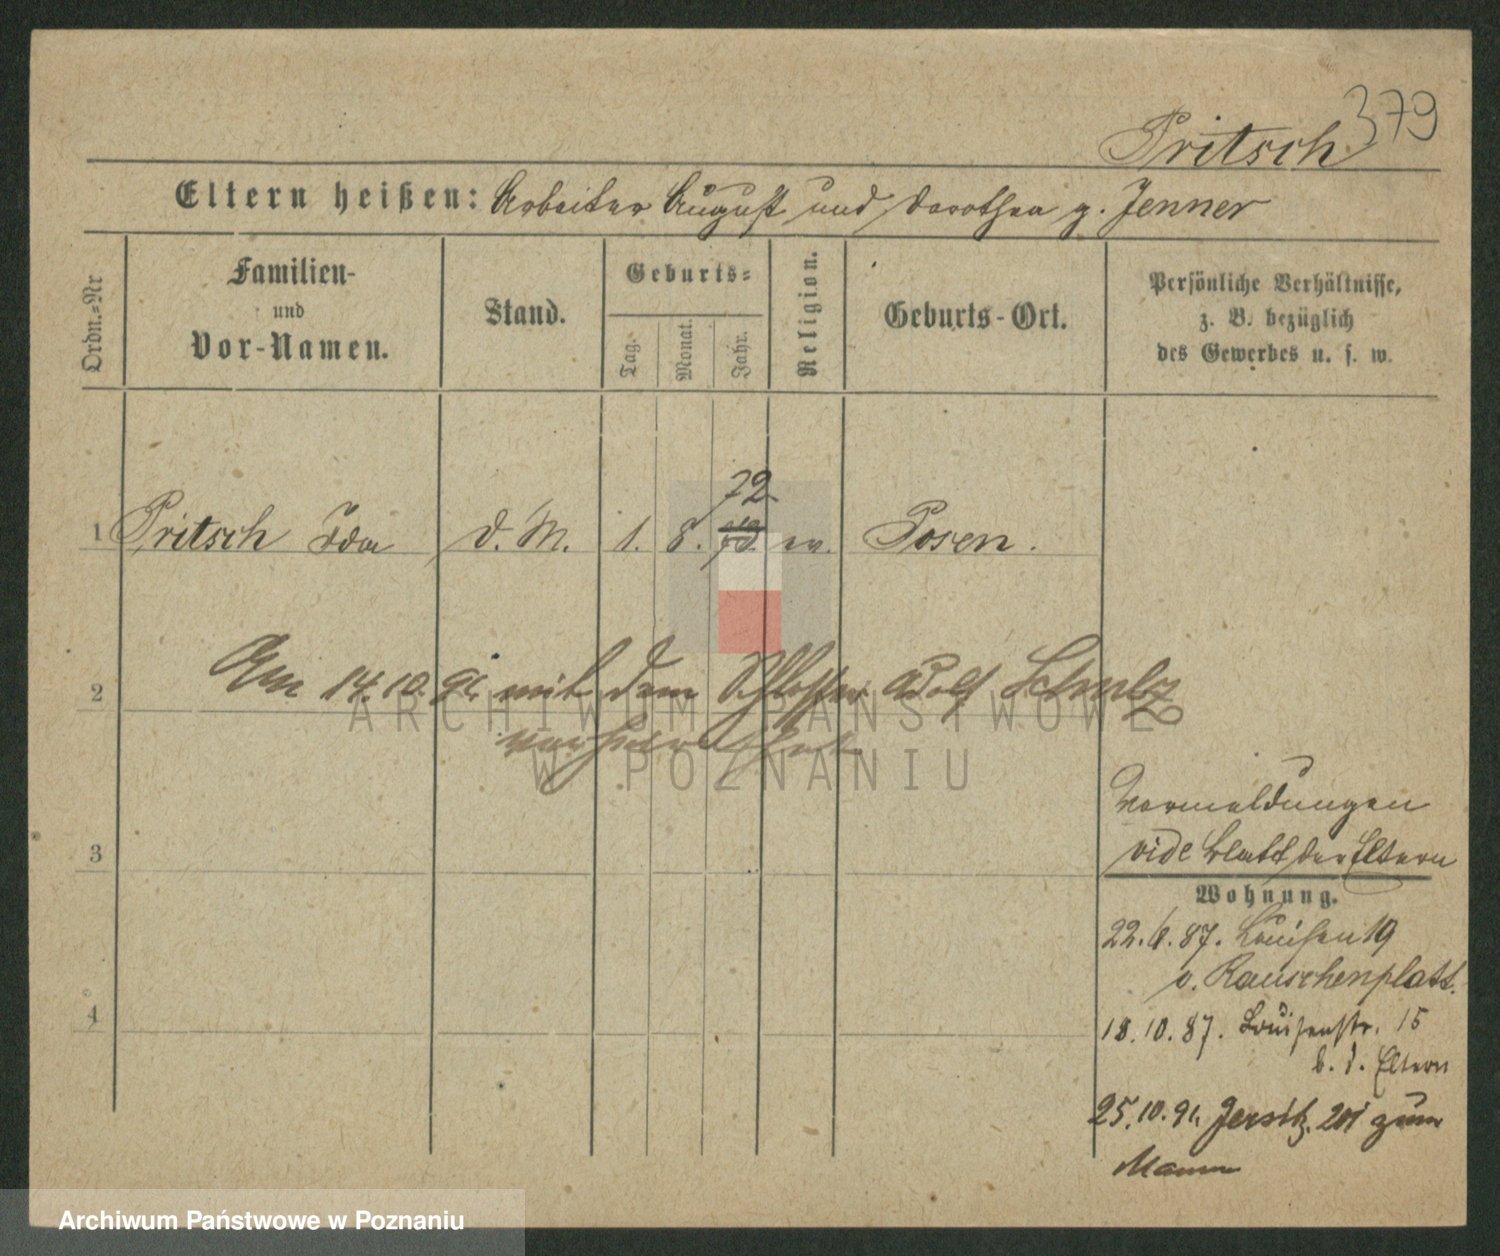 379
Pritsch
Eltern heißen: Arbeiter August und Dorothea g. Jenner
Ordn.-Nr
Familien-
und
Vor-Namen.
Stand.
Geburts-
Tag.
Monat.
Jahr.
Religion.
Geburts-Ort.
Persönliche Verhältnisse,
z. B. bezüglich
des Gewerbes u. s. w.
72
1 Pritsch Ida d. M. 1. 8. ev. Posen.
2 Am 14.10.91. mit dem Schlosser Adolf Schulz
verheirathet
ARCHIWUM PAŃSTWOWE
W POZNANIU
Vormeldungen
3 vide Blatt der Eltern
Wohnung.
22. 6. 87. Louisen 19
v. Rauschenplatt.
4 18. 10. 87. Louisenstr. 15
b. d. Eltern
25. 10. 91. Jersitz, 201 zum
Mann
Archiwum Państwowe w Poznaniu